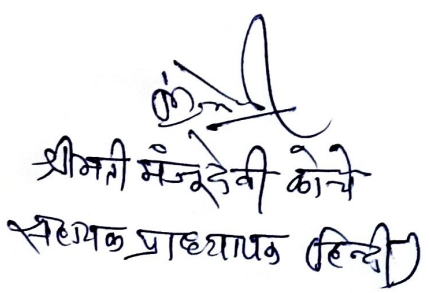 श्रीमती मंजूदेवी कोचे
सहायक प्राध्यापक (हिन्दी)